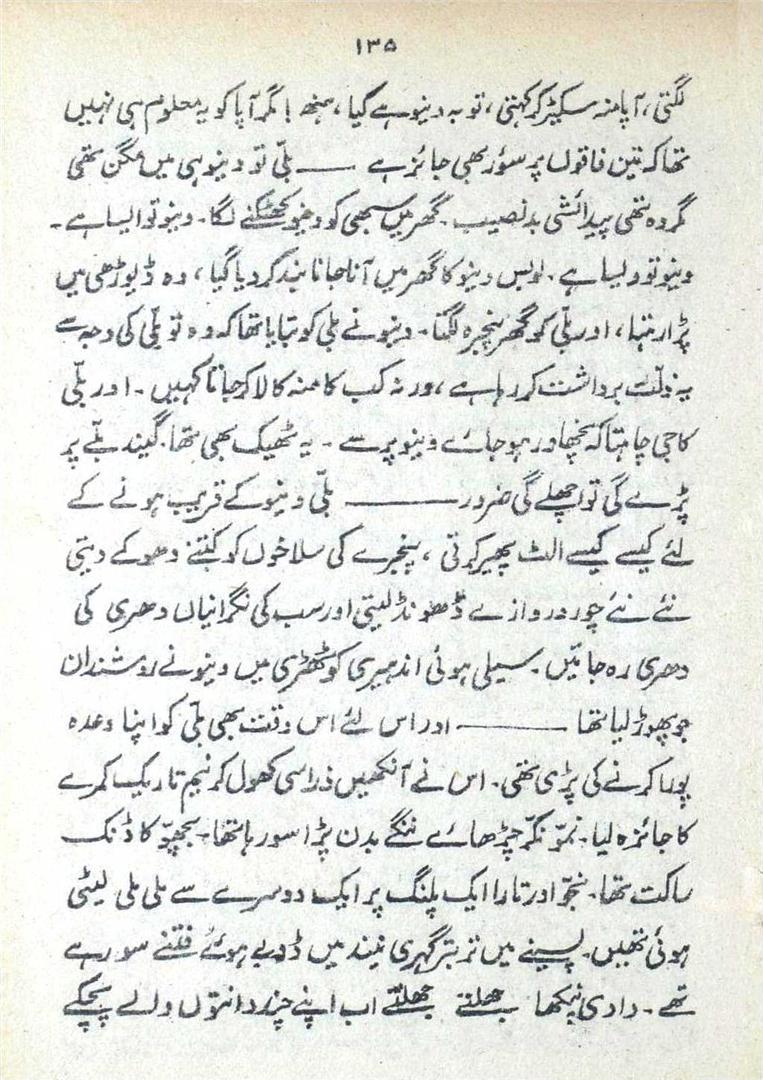 ۱۳۵
لگتی، آپا منہ سکیڑ کر کہتی، توبہ دینو ہے گیا، ہنھ! مگر آپا کو یہ معلوم ہی نہیں
تھا کہ تین فاقوں پر سؤر بھی جائز ہے ——— بلّی تو دینو ہی میں مگن تھی
مگر وہ تھی پیدائشی بدنصیب۔ گھر میں سبھی کو دینو کھٹکنے لگا۔ دینو تو ایسا ہے۔
دینو تو ویسا ہے۔ اوبس دینو کا گھر میں آنا جانا بند کر دیا گیا، وہ ڈیوڑھی میں
پڑا رہتا، اور بلّی کو گھر پنجرہ لگتا۔ دینو نے بلی کو بتایا تھا کہ وہ تو بلّی کی وجہ سے
یہ ذلّت برداشت کر رہا ہے، ورنہ کب کا منہ کالا کر جاتا کہیں۔ اور بلّی
کا جی چاہتا کہ نچھاور ہو جائے دینو پر سے۔ یہ ٹھیک بھی تھا۔ گیند بلّے پر
پڑے گی تو اچھلے گی ضرور ——— بلّی دینو کے قریب ہونے کے
لئے کیسے کیسے الٹ پھیر کرتی، پنجرے کی سلاخوں کو کتنے دھوکے دیتی
نئے نئے چور دروازے ڈھونڈ لیتی اور سب کی نگرانیاں دھری کی
دھری رہ جاتیں۔ سیلی ہوئی اندھیری کوٹھڑی میں دینو نے روشندان
جو پھوڑ لیا تھا ——— اور اس لئے اس وقت بھی بلّی کو اپنا وعدہ
پورا کرنے کی پڑی تھی۔ اس نے آنکھیں ذرا سی کھول کر نیم تاریک کمرے
کا جائزہ لیا۔ نمّو نکّر چڑھائے ننگے بدن پڑا سو رہا تھا۔ بچھّو کا ڈنک
ساکت تھا۔ نجّو اور تارا ایک پلنگ پر ایک دوسرے سے ملی ملی لیٹی
ہوئی تھیں۔ پسینے میں تر بتر گہری نیند میں ڈوبے ہوئے فتنے سو رہے
تھے۔ دادی پنکھا جھلتے جھلتے اب اپنے چند دانتوں والے پچکے